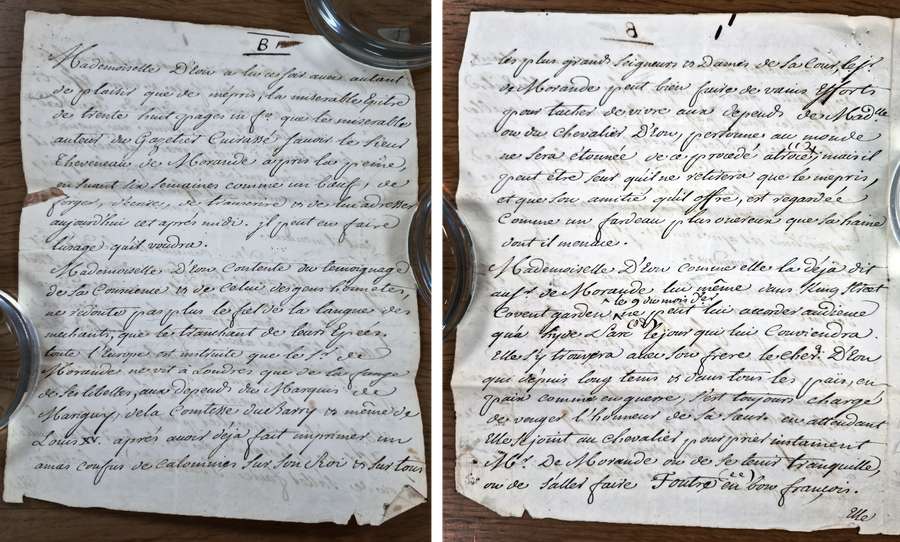 B
Mademoiselle D'Eon a lu ce soir avec autant
de plaisir que de mépris, la miserable Epitre
de trente huit pages in fo. que le miserable
auteur du Gazetier Cuirassé savoir le Sieur
Theveneau de Morande a pris la peine,
en suant six semaines comme un bœuf, de
forger, d'ecrire, de transcrire et de lui adresser
aujourdhui cet après midi. il peut en faire
lusage quil voudra.
Mademoiselle D'Eon Contente du temoignage
de sa Conscience et de Celui des gens honnêtes,
ne redoute pas plus le fiel de la langue des
mechants, que le tranchant de leurs Epées.
toute l'Europe est instruite que le Sr. de
Morande ne vit à Londres que de la fange
de ses libelles, aux depends du Marquis de
Marigny, de la Comtesse du Barry et même de
Louis XV. après avoir déja fait imprimer un
amas confus de calomnies sur son Roi et sur tous
B
les plus grands Seigneurs et Dames de la Cour, le Sr.
de Morande peut bien faire de vains Efforts
pour tacher de vivre aux depends de Madlle
ou du Chevalier D'Eon, personne au monde
ne sera étonnée de ce procedé atroce; mais il
peut être seur quil ne retirera que le mepris,
et que son amitié qu'il offre, est regardée
Comme un fardeau plus onereux que sa haine
dont il menace.
Mademoiselle D'Eon comme elle la déjà dit
au Sr. de Morande lui même dans King Street
Covent garden le 9 du mois der ne peut lui accorder audience
qua hyde Parc le jour qui lui Conviendra.
Elle s'y trouvera avec son frere le cher. D'Eon
qui depuis long tems et dans tous les païs, en
paix comme en guerre, s'est toujours chargé
de venger l'honneur de sa Sœur. en attendant
Elle se joint au Chevalier pour prier instament
Mr. De Morande ou de se tenir tranquille,
ou de s'aller faire Foutre en bon françois.
Elle